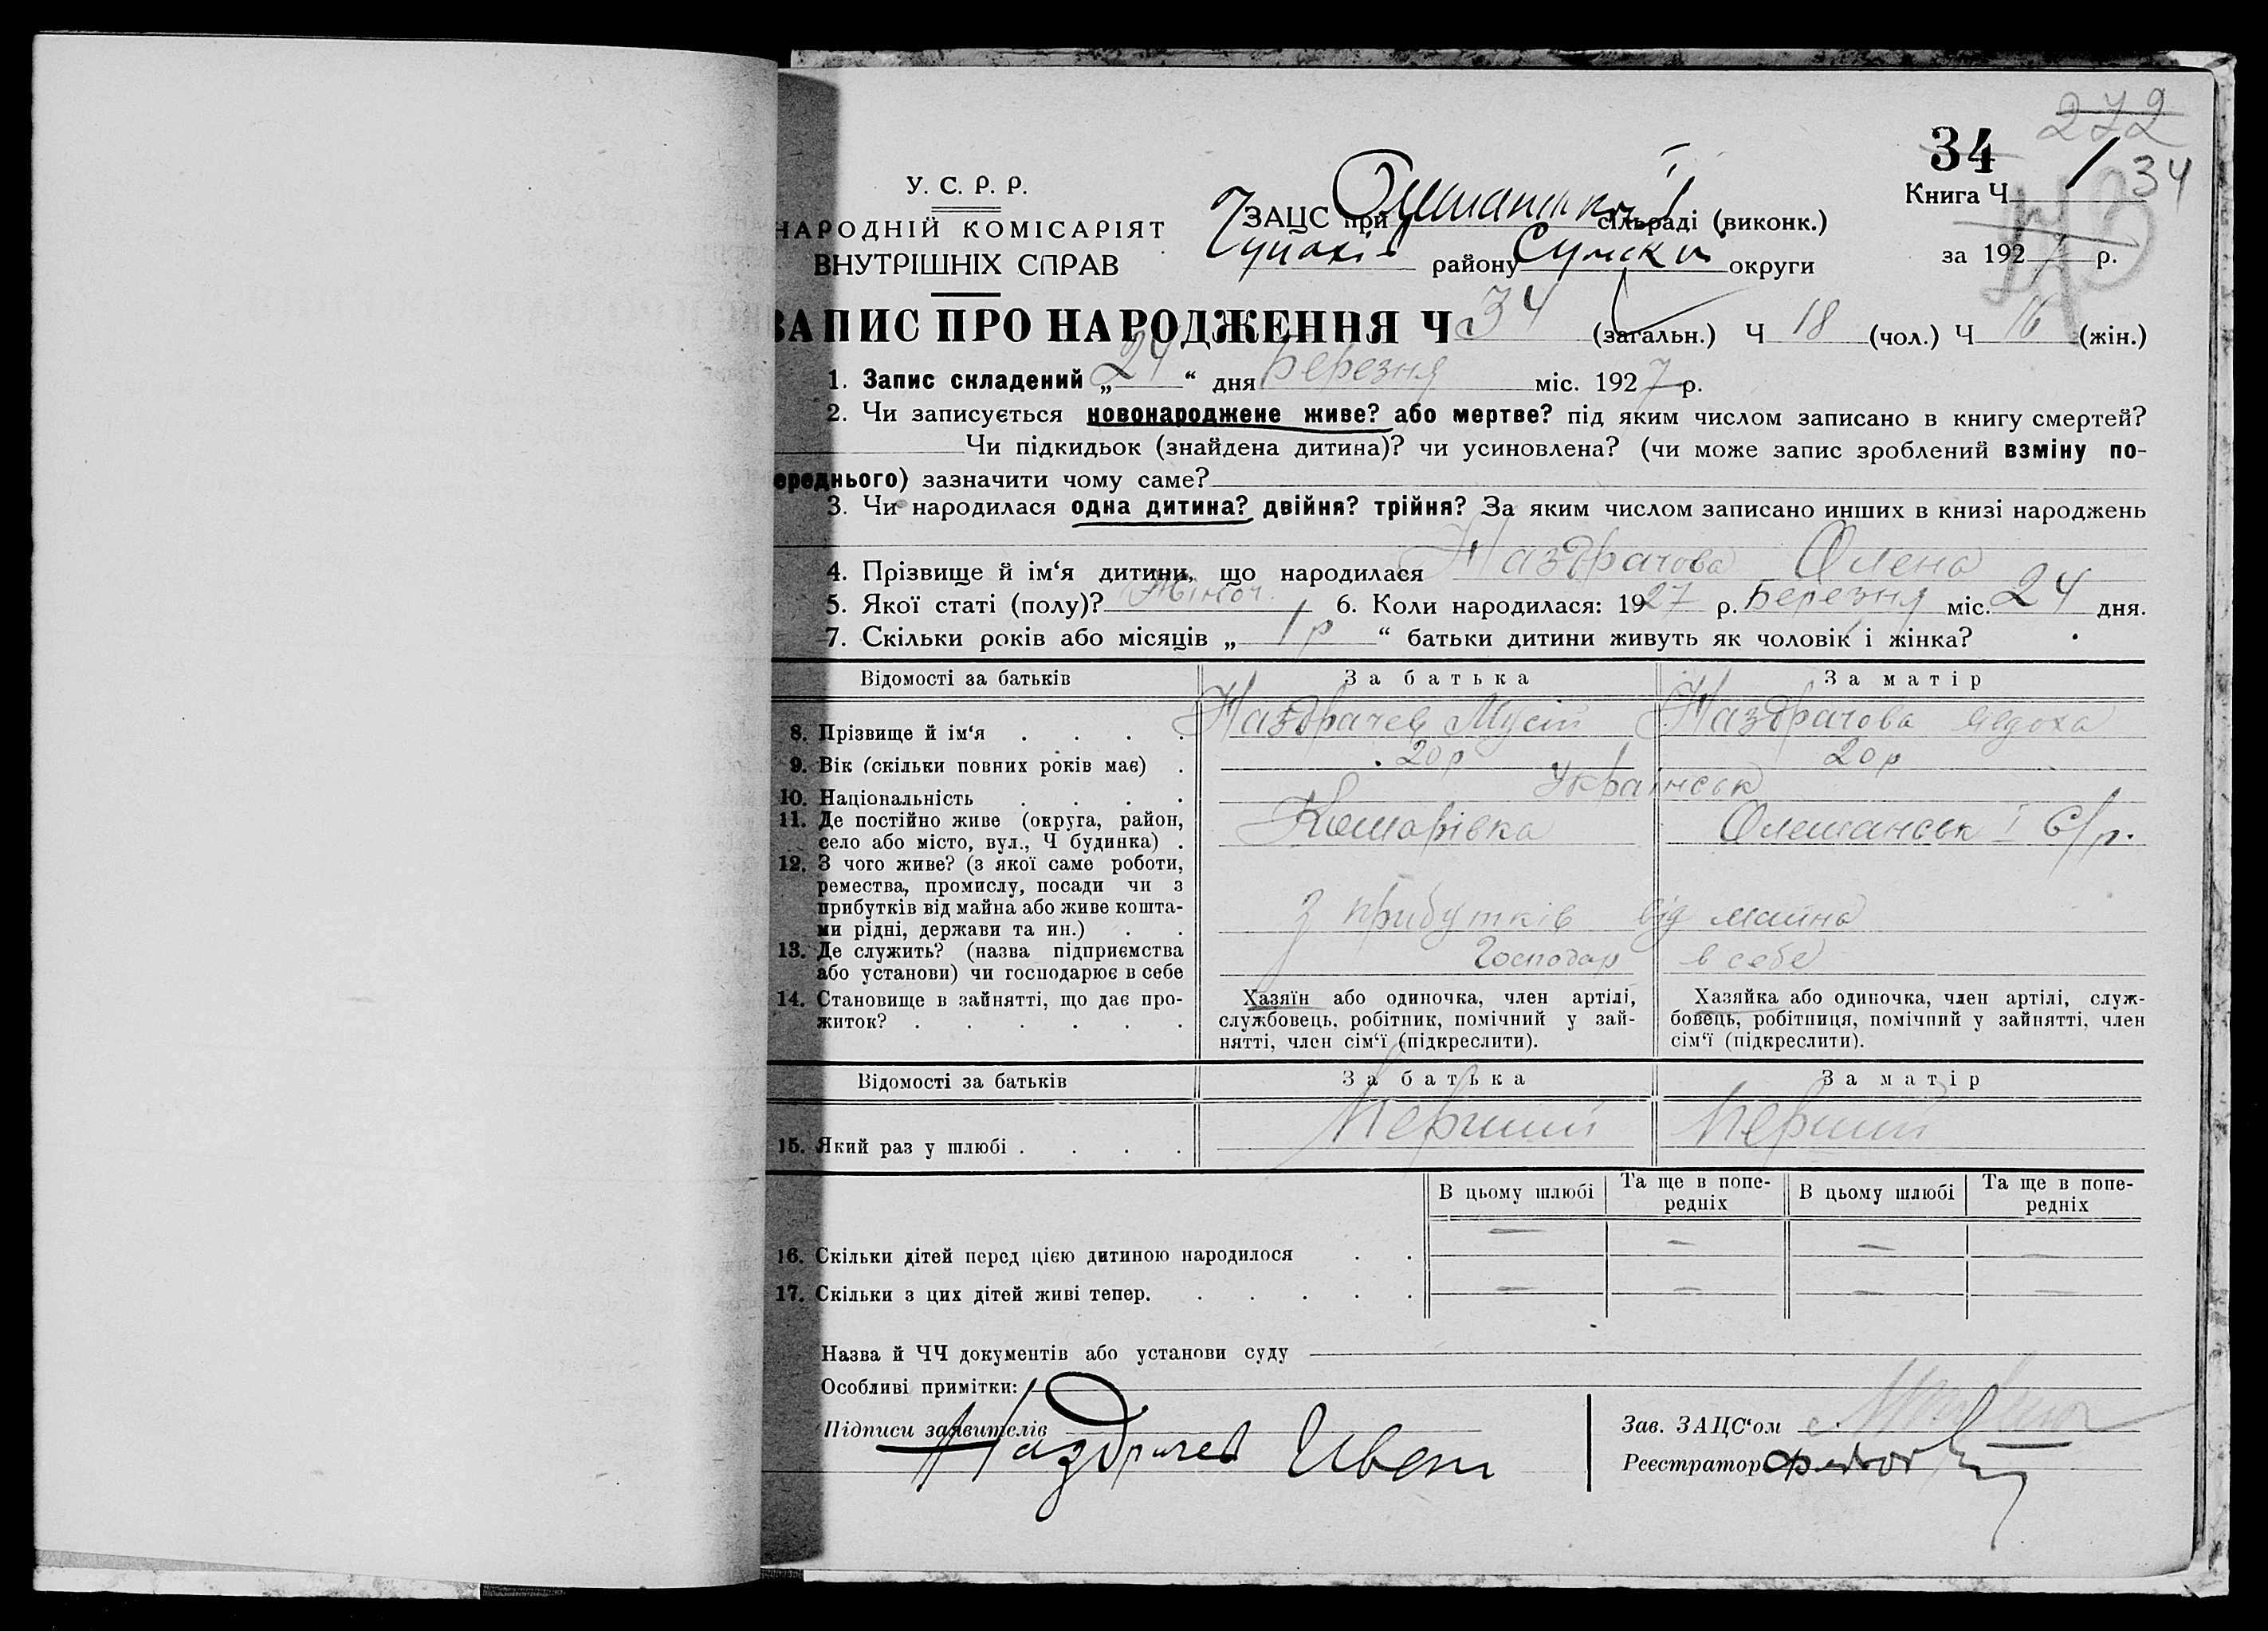 272
34
34
У. С. Р. Р.
НАРОДНІЙ КОМІСАРІЯТ
ВНУТРІШНІХ СПРАВ
Книга Ч 1
ЗАЦС при сільраді (виконк.)
району Сумськ округи
за 1927 р.
ЗАПИС ПРО НАРОДЖЕННЯ Ч 34 (загальн.) Ч 18 (чол.) Ч 16 (жін.)
1. Запис складений „24“ дня Березня міс. 1927 р.
2. Чи записується новонароджене живе? або мертве? під яким числом записано в книгу смертей?
Чи підкидьок (знайдена дитина)? чи усиновлена? (чи може запис зроблений взміну по-
ереднього) зазначити чому саме?
3. Чи народилася одна дитина? двійня? трійня? За яким числом записано инших в книзі народжень
4. Прізвище й ім‘я дитини, що народилася Наздрачова Олена
5. Якої статі (полу)? Жіноч. 6. Коли народилася: 1927 р. Березня міс. 24 дня.
7. Скільки років або місяців „1 р“ батьки дитини живуть як чоловік і жінка?
Відомості за батьків За батька За матір
8. Прізвище й ім‘я . . . . Наздрачев Мусій Наздрачова Явдоха
9. Вік (скільки повних років має) . 20 р 20 р
10. Національність . . . . Українськ
11. Де постійно живе (округа, район,
село або місто, вул., Ч будинка) . Комарівка Олешанськ І С/р.
12. З чого живе? (з якої саме роботи,
ремества, промислу, посади чи з
прибутків від майна або живе кошта-
ми рідні, держави та ин.) . . З прибутків від майна
13. Де служить? (назва підприємства
або установи) чи господарює в себе Господар в себе
14. Становище в зайнятті, що дає про-
житок? . . . . . .
Хазяїн або одиночка, член артілі,
службовець, робітник, помічний у зай-
нятті, член сім‘ї (підкреслити).
Хазяйка або одиночка, член артілі, служ-
бовець, робітниця, помічний у зайнятті, член
сім‘ї (підкреслити).
Відомості за батьків За батька За матір
15. Який раз у шлюбі . . . . Перший Перший
В цьому шлюбі Та ще в попе-
редніх В цьому шлюбі Та ще в попе-
редніх
16. Скільки дітей перед цією дитиною народилося . . — — — —
17. Скільки з цих дітей живі тепер. . . . . . — — — —
Назва й ЧЧ документів або установи суду
Особливі примітки:
Підписи заявителів Наздрачев
Зав. ЗАЦС‘ом
Реєстратор